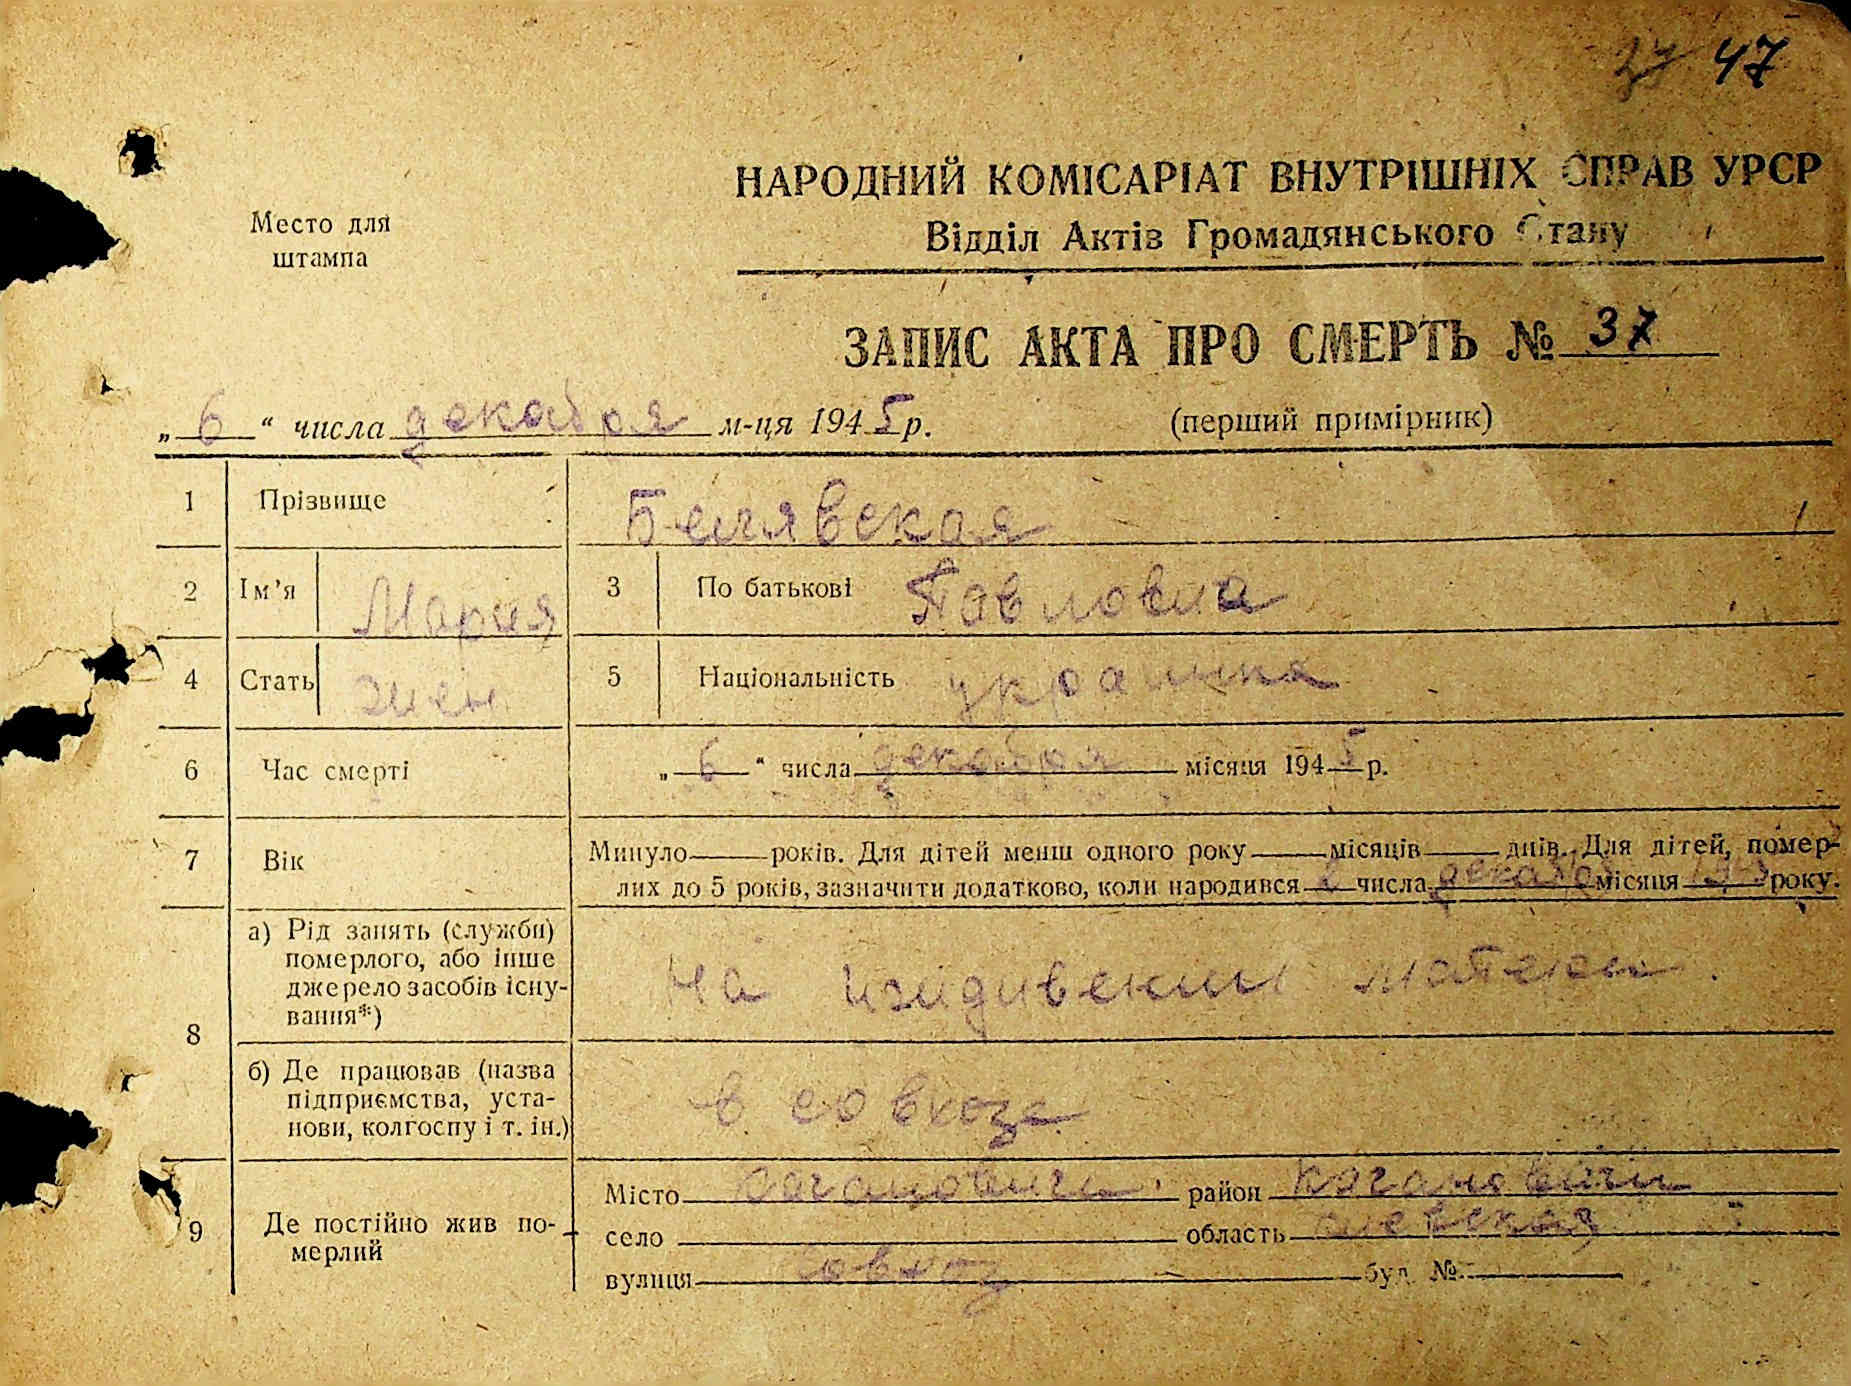 37 47
НАРОДНИЙ КОМІСАРІАТ ВНУТРІШНІХ СПРАВ УРСР
Відділ Актів Громадянського Стану
Место для
штампа
ЗАПИС АКТА ПРО СМЕРТЬ № 37
„ 6 “ числа декабря м-ця 1945 р.
(перший примірник)
1 Прізвище Белявская
2 Ім'я Мария 3 По батькові Павловна
4 Стать жен 5 Національність украинка
6 Час смерті „ 6 “ числа декабря місяця 1945 р.
7 Вік Минуло років. Для дітей менш одного року місяців днів. Для дітей, помер-
лих до 5 років, зазначити додатково, коли народився 2 числа декабря місяця 1945 року.
8 а) Рід занять (служби)
померлого, або інше
джерело засобів існу-
вання*)
На иждивении матери.
б) Де працював (назва
підприємства, уста-
нови, колгоспу і т. ін.)
в совхозе
9 Де постійно жив по-
мерлий
Місто Кагановичи район Кагановичи
село область Киевская
вулиця Совхоз буд. №